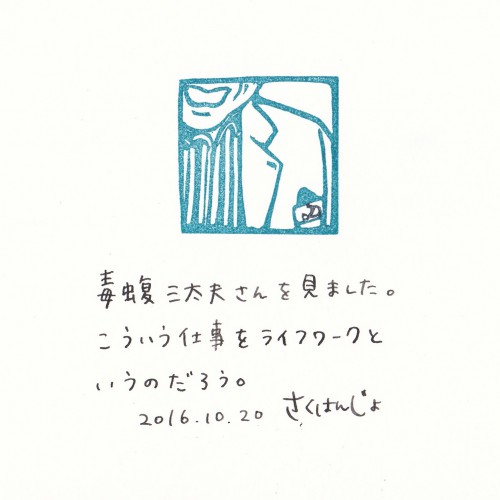 毒蝮三太夫さんを見ました。
こういう仕事をライフワークと
いうのだろう。
2016.10.20 さくはんじょ